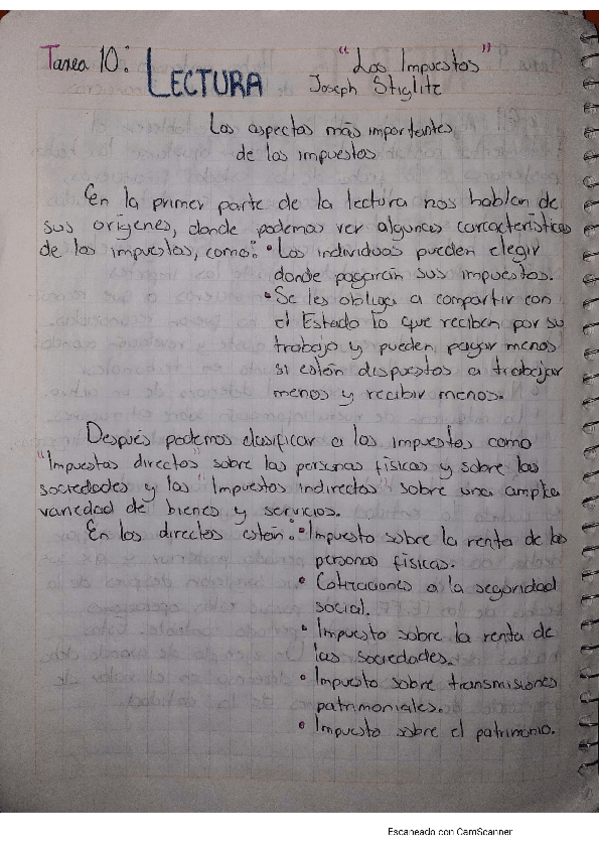 Tarea 10: LECTURA "Los Impuestos"
Joseph Stiglitz
Los aspectos más importantes
de los impuestos
En la primer parte de la lectura nos hablan de
sus orígenes, donde podemos ver algunas características
de los impuestos, como: • Los individuos pueden elegir
donde pagarán sus impuestos.
• Se les obliga a compartir con
el Estado lo que reciben por su
trabajo y pueden pagar menos
si están dispuestos a trabajar
menos y recibir menos.
Después podemos clasificar a los impuestos como
"Impuestos directos" sobre las personas físicas y sobre las
sociedades y los "Impuestos indirectos" sobre una amplia
variedad de bienes y servicios.
En los directos están: • Impuesto sobre la renta de las
personas físicas.
• Cotizaciones a la seguridad
social.
• Impuesto sobre la renta de
las sociedades.
• Impuesto sobre transmisiones
patrimoniales.
• Impuesto sobre el patrimonio.
Escaneado con CamScanner